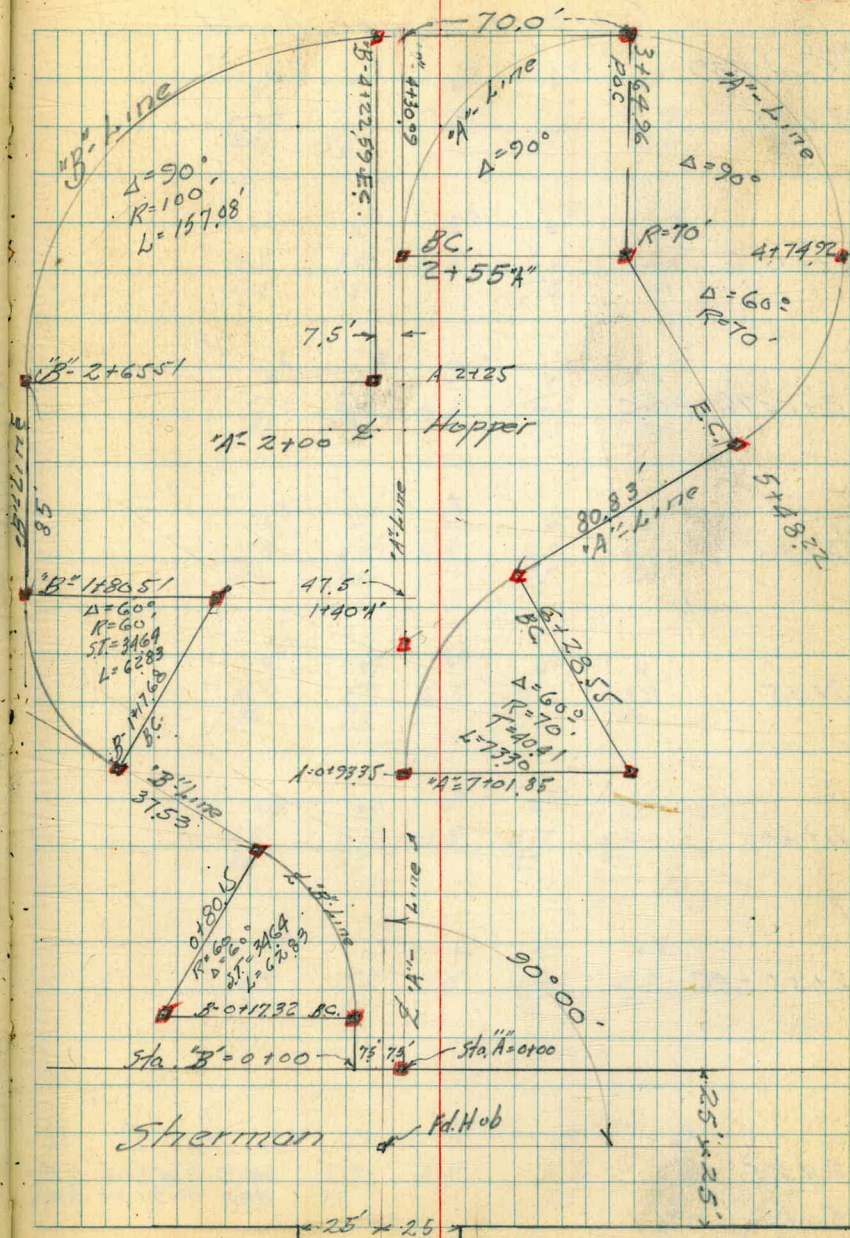 70.0'
"B"-Line
Δ=90°
R=100'
L=157.08'
"B"-4+22.59 E.C.
4+30.09
"A"-Line
Δ=90°
3+64.96
P.O.C.
"A"-Line
Δ=90°
B.C.
2+55"A"
R=70'
4+74.92
Δ=60°
R=70'
7.5'
"B"-2+65.51
A 2+25
"A"-2+00 ℄ Hopper
E.C.
5+48.22
85'
"A"Line
80.83'
"A"-Line
"B"-1+80.51
47.5'
1+40"A"
Δ=60°
R=60'
S.T.=34.64
L=62.83
B-1+17.68
B.C.
6+28.55
B.C.
Δ=60°
R=70'
T=40.41
L=73.30
A=0+93.35
"A"=7+01.85
"B"Line
37.53
℄ "B"-Line
0+80.15
R=60'
Δ=60°
S.T.=34.64
L=62.83
B-0+17.32 B.C.
℄ "A"- Line
90°00'
Sta. "B"=0+00
7.5' 7.5'
Sta. "A"=0+00
Sherman
Fd. Hub
25' 25'
25' 25